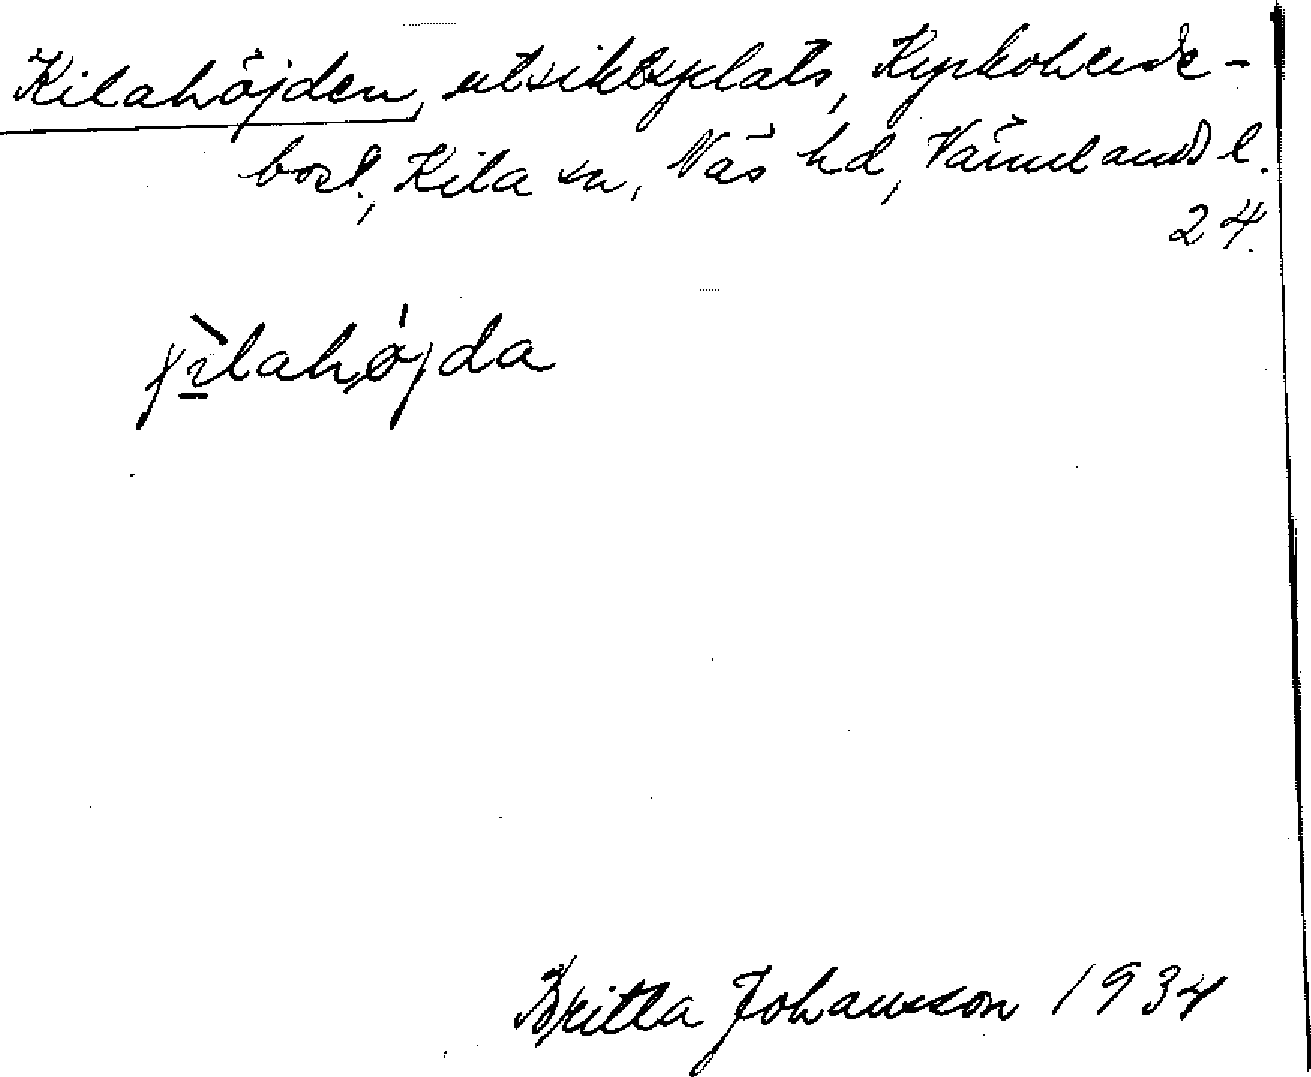 Kilahöjden, utsiktsplats, Kyrkoherde-
bost., Kila sn, Näs hd, Värmlands l.
24.
Britta Johansson 1934